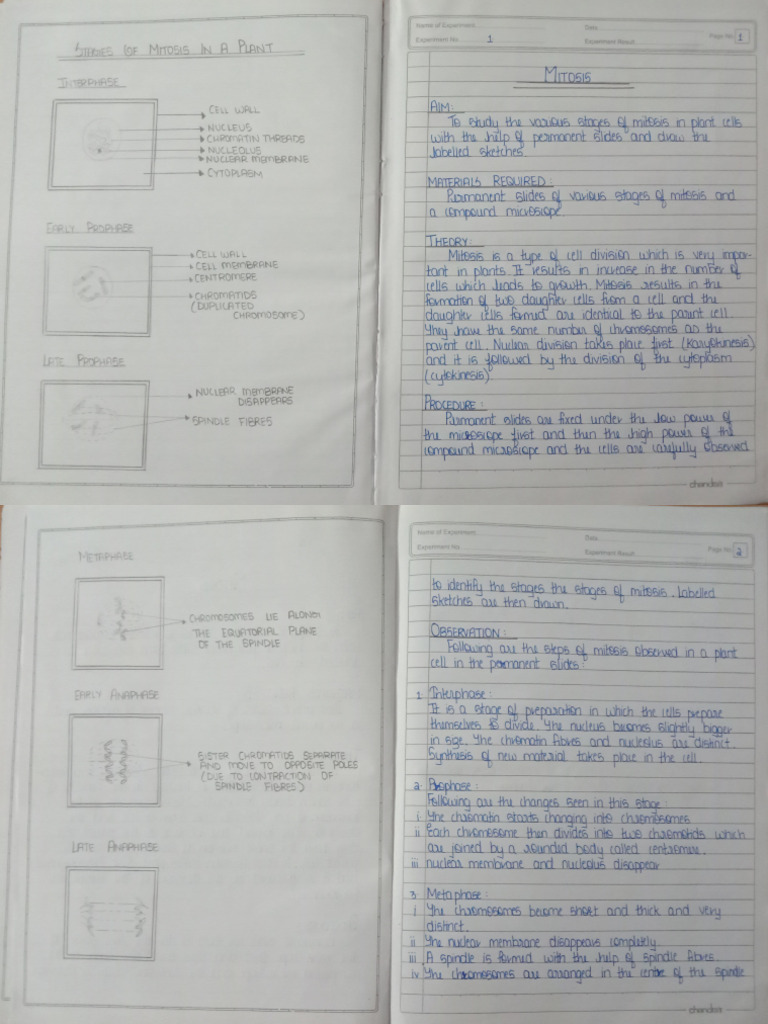 STUDIES OF MITOSIS IN A PLANT
INTERPHASE
CELL WALL
NUCLEUS
CHROMATIN THREADS
NUCLEOLUS
NUCLEAR MEMBRANE
CYTOPLASM
EARLY PROPHASE
CELL WALL
CELL MEMBRANE
CENTROMERE
CHROMATIDS
(DUPLICATED
CHROMOSOME)
LATE PROPHASE
NUCLEAR MEMBRANE
DISAPPEARS
SPINDLE FIBRES
Name of Experiment
Date
Page No. 1
Experiment No. 1
Experiment Result
MITOSIS
AIM:
To study the various stages of mitosis in plant cells
with the help of permanent slides and draw the
labelled sketches.
MATERIALS REQUIRED:
Permanent slides of various stages of mitosis and
a compound microscope.
THEORY:
Mitosis is a type of cell division which is very impor-
tant in plants. It results in increase in the number of
cells which leads to growth. Mitosis results in the
formation of two daughter cells from a cell and the
daughter cells formed are identical to the parent cell.
They have the same number of chromosomes as the
parent cell. Nuclear division takes place first (karyokinesis)
and it is followed by the division of the cytoplasm
(cytokinesis).
PROCEDURE:
Permanent slides are fixed under the low power of
the microscope first and then the high power of the
compound microscope and the cells are carefully observed
chandan
METAPHASE
CHROMOSOMES LIE ALONG
THE EQUATORIAL PLANE
OF THE SPINDLE
EARLY ANAPHASE
SISTER CHROMATIDS SEPARATE
AND MOVE TO OPPOSITE POLES
(DUE TO CONTRACTION OF
SPINDLE FIBRES)
LATE ANAPHASE
Name of Experiment
Date
Page No. 2
Experiment No.
Experiment Result
to identify the stages the stages of mitosis. Labelled
sketches are then drawn.
OBSERVATION:
Following are the steps of mitosis observed in a plant
cell in the permanent slides:
1. Interphase:
It is a stage of preparation in which the cells prepare
themselves to divide. The nucleus becomes slightly bigger
in size. The chromatin fibres and nucleolus are distinct.
Synthesis of new material takes place in the cell.
2. Prophase:
Following are the changes seen in this stage:
i. The chromatin starts changing into chromosomes
ii. Each chromosome then divides into two chromatids which
are joined by a rounded body called centromere.
iii. nuclear membrane and nucleolus disappear
3. Metaphase:
i. The chromosomes become short and thick and very
distinct.
ii. The nuclear membrane disappears completely
iii. A spindle is formed with the help of spindle fibres.
iv. The chromosomes are arranged in the centre of the spindle
chandan